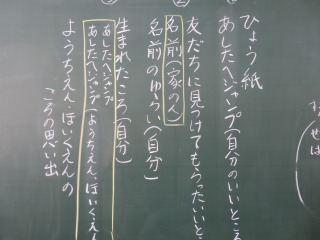 ひょう紙
あしたへジャンプ(自分のいいところ
友だちに見つけてもらったいいと
名前(家の人)
名前のゆらい(自分)
生まれたころ(自分)
あしたへジャンプ
あしたへジャンプ(ようちえん・ほいくえん
ようちえん・ほいくえんの
ころの思い出